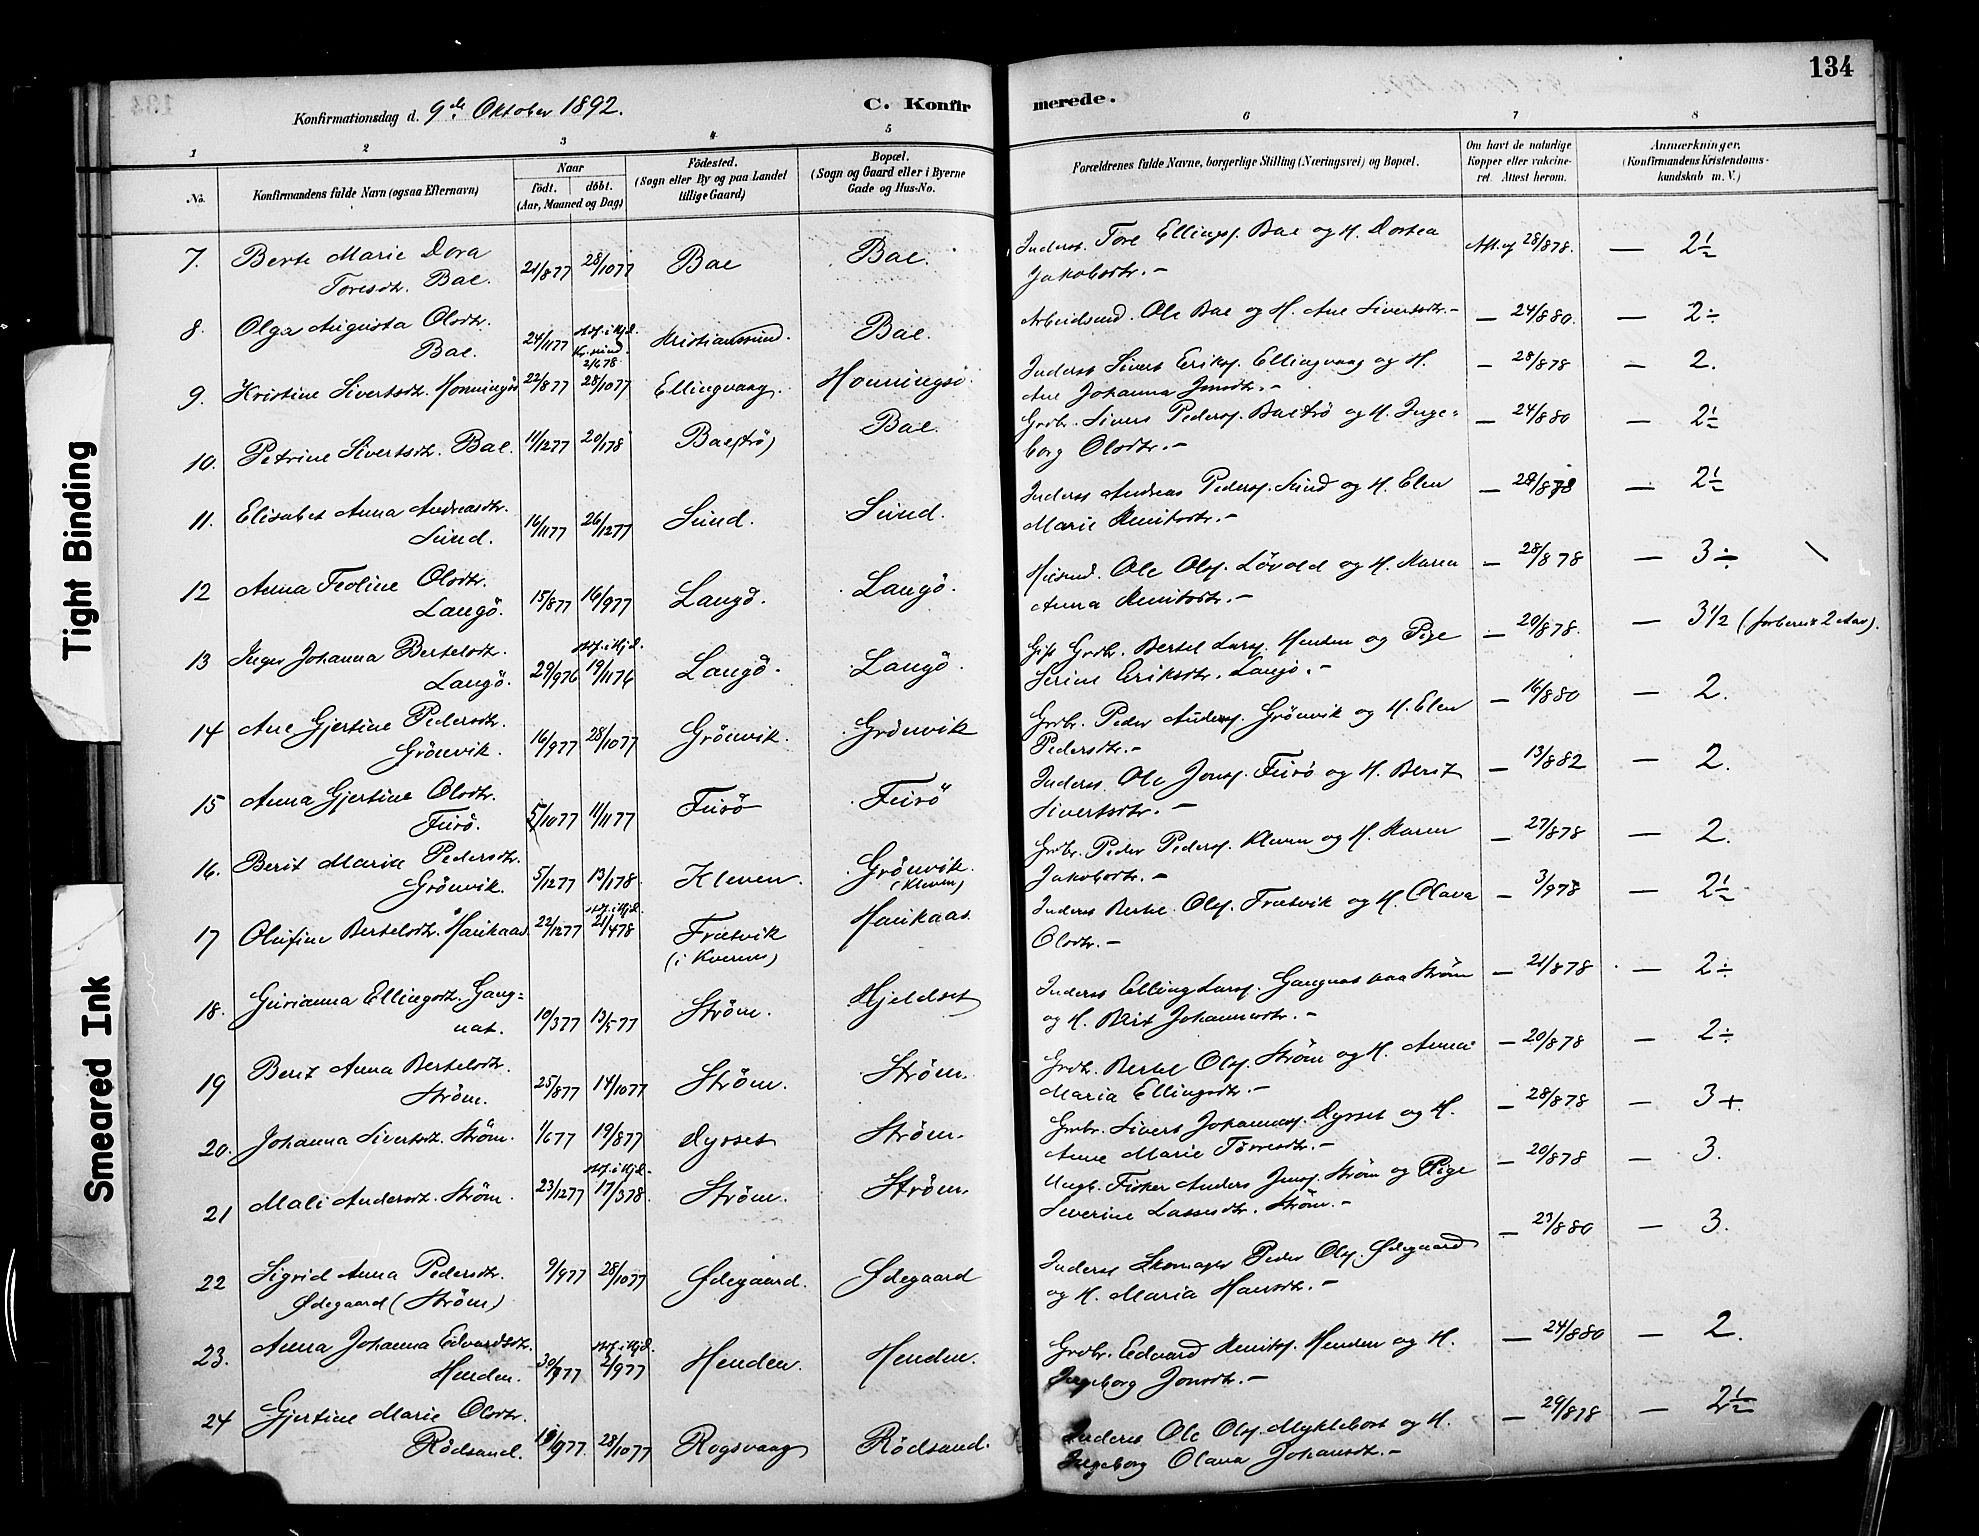 134
Konfirmationsdag d. 9de Oktober 1892.
C. Konfirmerede.
1 2 3 4 5 6 7 8
No.
Konfirmandens fulde Navn (ogsaa Efternavn)
Naar
födt. döbt.
(Aar, Maaned og Dag)
Födested.
(Sogn eller By og paa Landet
tillige Gaard)
Bopæl.
(Sogn og Gaard eller i Byerne
Gade og Hus-No.
Forældrenes fulde Navne, borgerlige Stilling (Næringsvei) og Bopæl.
Om havt de naturlige
Kopper eller vakcine-
ret. Attest herom.
Anmærkninger.
(Konfirmandens Kristendoms-
kundskab m. V.)
7. Berte Marie Dora
Toresdtr. Bae. 21/8 77 28/10 77 Bae Bae.
Inders. Tore Ellings. Bae og H. Dortea
Jakobsdtr. – Att. af 28/8 78. — 2½
8. Olga Augusta Olsdtr.
Bae. 24/11 77 Kr.sund 2/6 78 Kristianssund. Bae.
Arbeidsmd. Ole Bae og H. Ane Sivertsdtr. – — 24/8 80. — 2÷
9. Kristine Sivertsdtr. Honningsö 22/8 77 28/10 77 Ellingvaag. Honningsö.
Inderst Sivert Eriks. Ellingvaag og H.
Ane Johanna Jonsdtr. – — 28/8 78 — 2.
10. Petrine Sivertsdtr. Bae. 11/12 77 20/1 78 Bae(trö) Bae.
Grdbr. Sivert Peders. Baetrö og H. Inge-
borg Olsdtr. – — 24/8 80 — 2½
11. Elisabet Anna Andreasdtr.
Sund. 16/11 77 26/12 77 Sund. Sund.
Inderst Andreas Peders. Sund og H. Elen
Marie Knutsdtr. – — 28/8 78 — 2½
12 Anna Feoline Olsdtr.
Langö. 15/8 77 16/9 77 Langö. Langö.
Husmd. Ole Ols. Lövold og H. Maren
Anna Knutsdtr. – — 28/8 78 — 3÷
13 Inger Johanna Bertelsdtr.
Langö. 29/9 76 19/11 76 Langö. Langö.
Gift Grdbr. Bertel Lars. Henden og Pige
Serine Eriksdtr. Langö. – — 20/8 78. — 3½ (forberedt 2 Aar).
14 Ane Gjertine Pedersdtr.
Grönvik. 16/9 77 28/10 77 Grönvik. Grönvik
Grdbr. Peder Anders. Grönvik og H. Elen
Pedersdtr. – — 16/8 80 — 2.
15 Anna Gjertine Olsdtr.
Furö. 5/10 77 11/11 77 Furö Furö
Inderst Ole Jons. Furö og H. Berit
Sivertsdtr. – — 13/8 82 — 2.
16. Berit Marie Pedersdtr.
Grönvik. 5/12 77 13/1 78. Kleven. Grönvik.
(Kleven)
Grdbr. Peder Peders. Kleven og H. Karen
Jakobsdtr. – — 27/8 78 — 2.
17 Olufine Bertelsdtr. Haukaas. 22/12 77 21/4 78 Frætvik
(i Kvernes) Haukaas.
Inderst Bertel Ols. Frætvik og H. Olava
Olsdtr. – — 3/9 78 — 2½
18. Gurianna Ellingsdtr. Gang-
nat. 10/3 77 13/5 77 Ström. Hjeldset
Inderst Elling Lars. Gangnat paa Ström
og H. Brit Johannesdtr. – — 21/8 78 — 2÷
19 Berit Anna Bertelsdtr.
Ström. 25/8 77 14/10 77 Ström. Ström.
Grdbr. Bertel Ols. Ström og H. Anna
Maria Ellingsdtr. – — 20/8 78 — 2÷
20. Johanna Sivertsdtr. Ström. 1/6 77 19/8 77 Dysset Ström.
Grdbr. Sivert Johanness. Dysset og H.
Anne Marie Torresdtr. – — 28/8 78 — 3+.
21 Mali Andersdtr. Ström. 23/12 77 17/3 78. Ström. Ström.
Ungk. Fisker Anders Jons. Ström og Pige
Severine Lassesdtr. Ström. – — 20/8 78 — 3.
22 Sigrid Anna Pedersdtr.
Ødegaard (Ström) 9/9 77 28/10 77 Ødegaard. Ødegaard
Inderst Skomager Peder Ols. Ødegaard
og H. Maria Hansdtr. – — 23/8 80 — 3.
23. Anna Johanna Edvardsdtr.
Henden. 30/77 2/9 77 Henden. Henden.
Grdbr. Edvard Knuts. Henden og H.
Ingeborg Jonsdtr. – — 24/8 80 — 2.
24 Gjertine Marie Olsdtr.
Rödsand. 77 28/10 77 Rogsvaag Rödsand.
Inderst Ole Ols. Myklebost og H.
Ingeborg Olava Johansdtr. – — 29/8 78 — 2½
Tight Binding
Smeared Ink